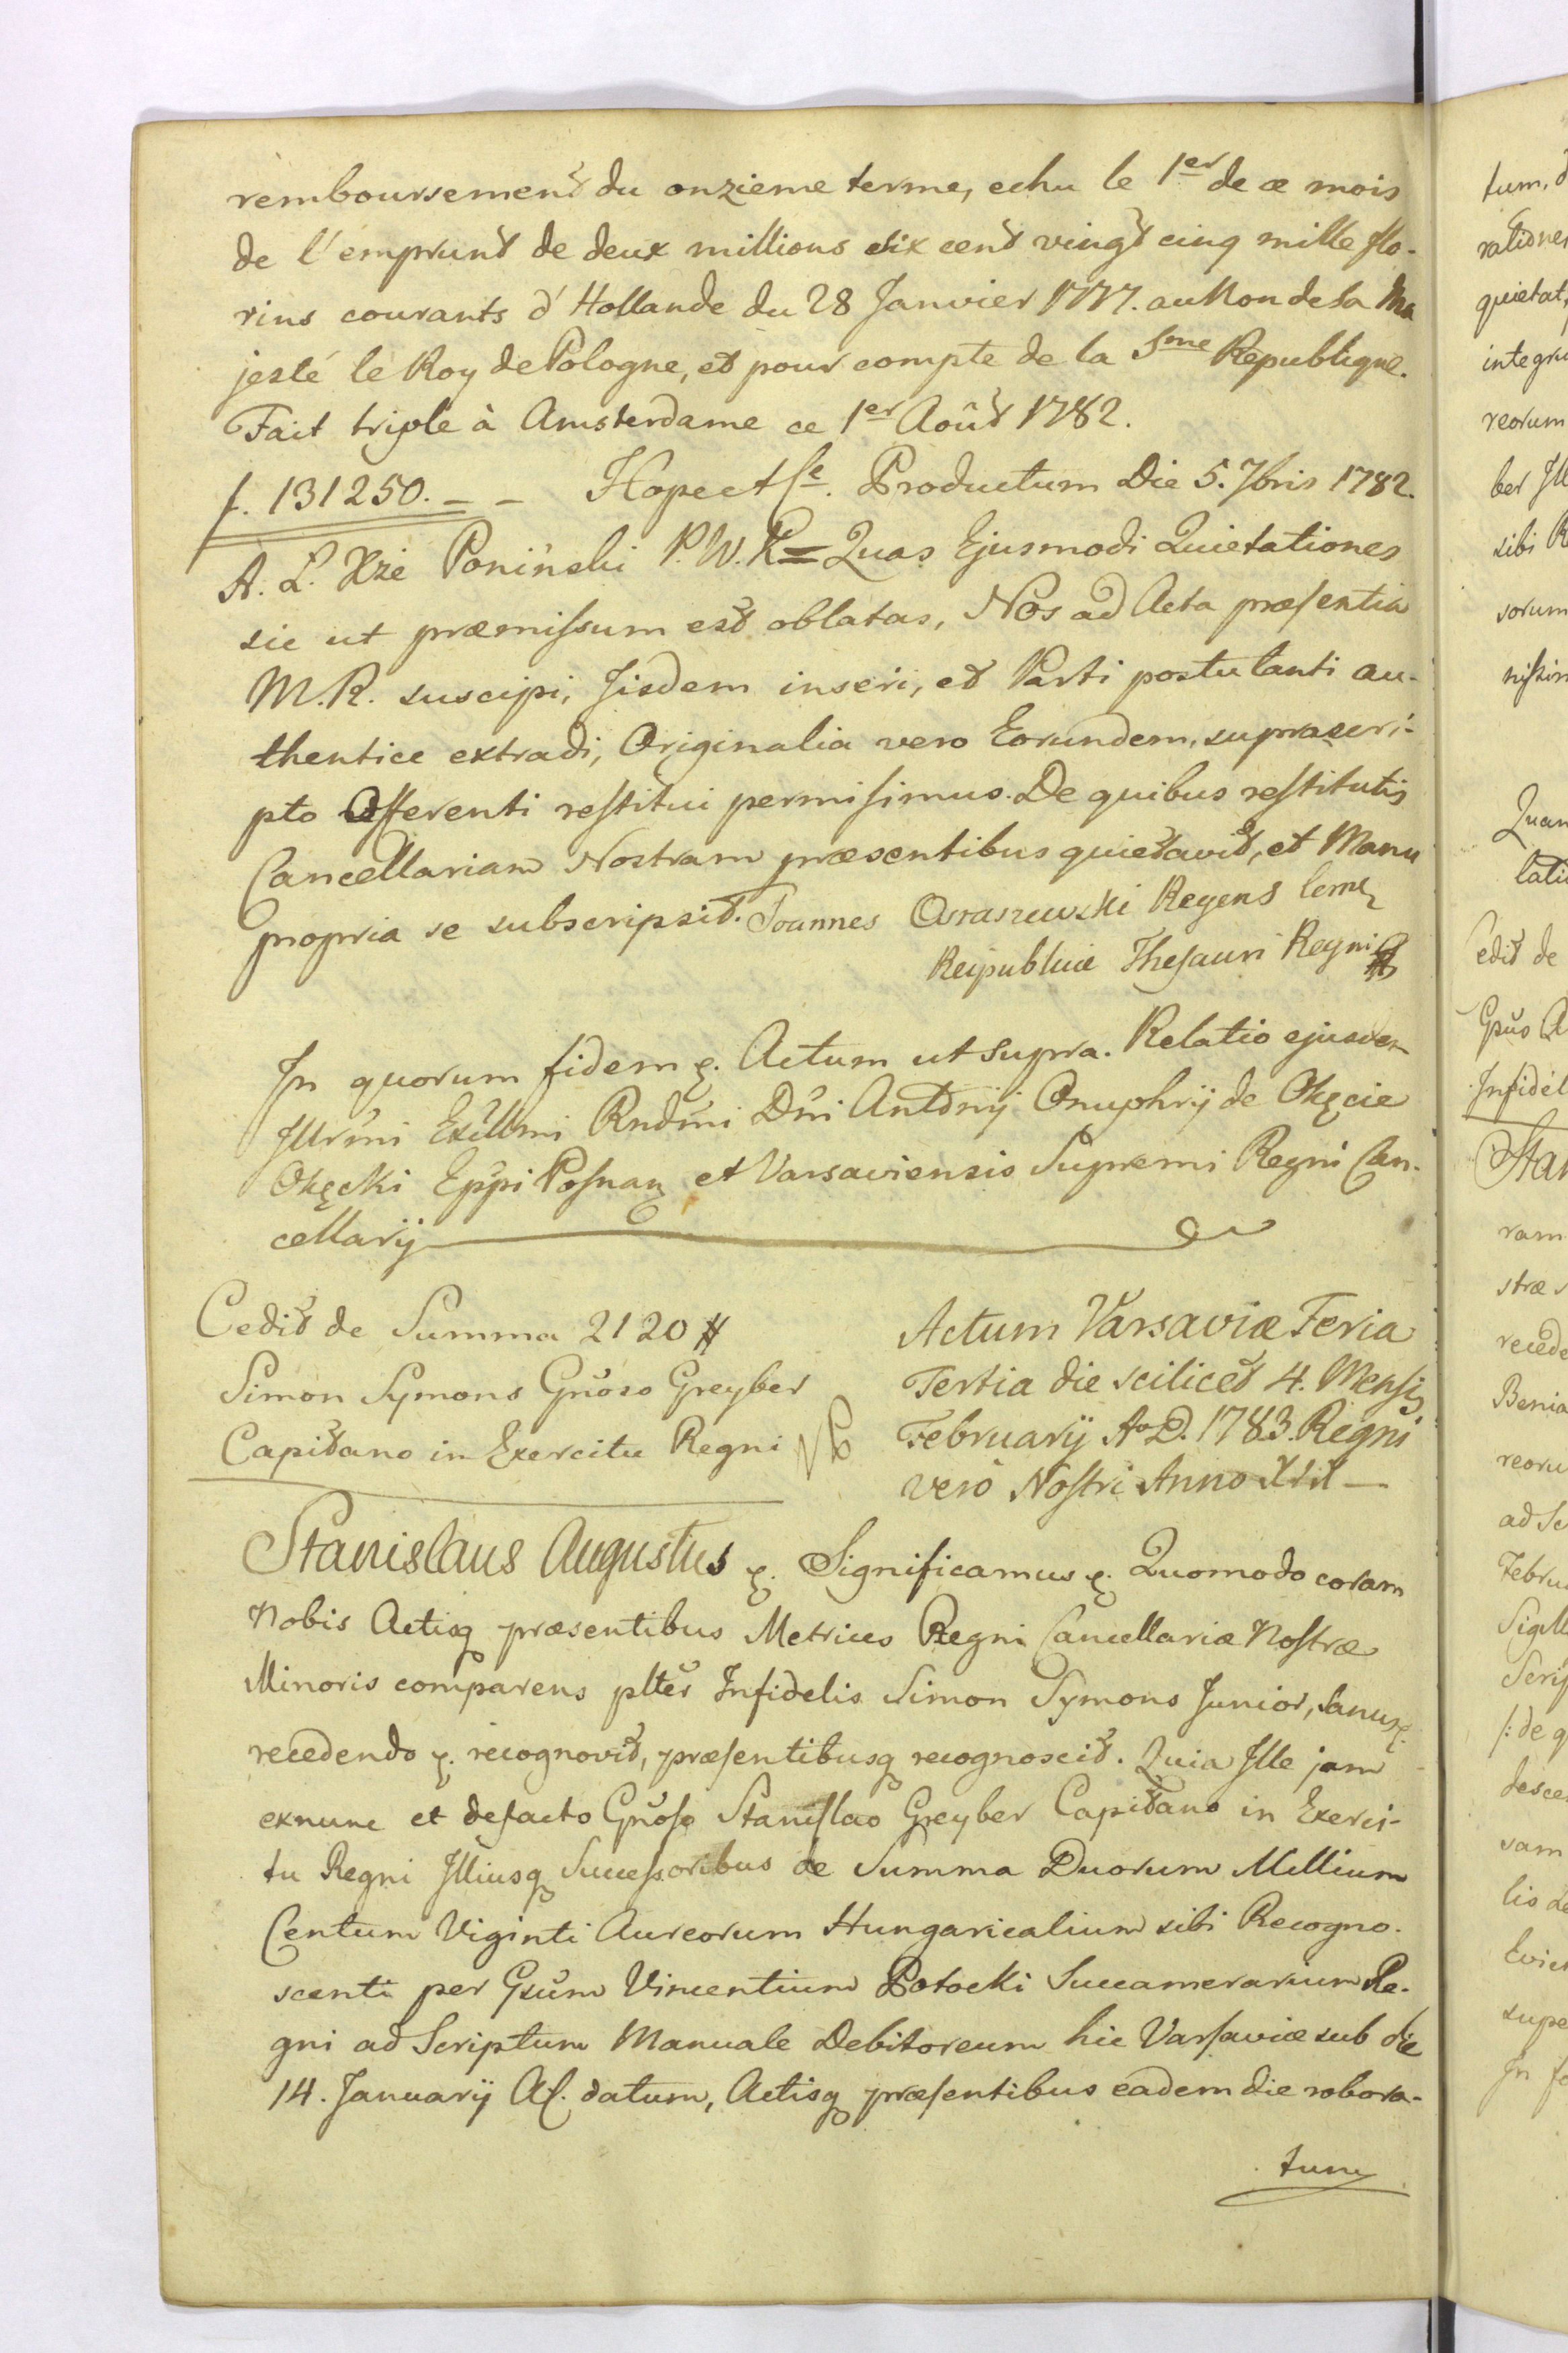 remboursement du onzieme terme, echu le 1er de ce mois
de l'emprunt de deux millions six cent vingt cinq mille flo-
rins courants d'Hollande du 28 Janvier 1777. au Nom de Sa Ma
jesté le Roy de Pologne, et pour compte de la Sme Republique.
Fait triple à Amsterdame ce 1er Août 1782.
f. 131250. - - Hope et Ce. Productum Die 5. 7bris 1782.
A. Ł. Xże Poniński P.W.K. = Quas Ejusmodi Quietationes
sic ut præmissum est oblatas, Nos ad Acta præsentia
M.R. suscipi, Jisdem inseri, et Parti postulanti au-
thentice extradi, Originalia vero Eorundem, suprascri-
pto Offerenti restitui permisimus. De quibus restitutis
Cancellariam Nostram præsentibus quietavit, et Manu
propria se subscripsit. Joannes Regens
Reipublicæ Thesauri Regni
In quorum fidem &. Actum ut supra. Relatio ejusdem
Jllrmi Excllmi Rndmi Dni Antonij Onuphrij de Okęcie
Okęcki Eppi Posnan et Varsaviensis Supremi Regni Can-
cellarij
Cedit de Summa 2120 #
Simon Symons Gnoso Greyber
Capitano in Exercitu Regni
Actum Varsaviæ Feria
Tertia die scilicet 4. Mensis
February Ao D. 1783. Regni
vero Nostri Anno XIX
Stanislaus Augustus &. Significamus &. Quomodo coram
Nobis Actisq præsentibus Metrices Regni Cancellariæ Nostræ
Minoris comparens plter Infidelis Simon Symons Junior, Sanus &.
recedendo &. recognovit, præsentibusq recognoscit. Quia Jlle jam
exnunc et defacto Gnoso Stanislao Greyber Capitano in Exerci-
tu Regni Jlliusq Successoribus de Summa Duorum Millium
Centum Viginti Aureorum Hungaricalium sibi Recogno-
scenti per Gsum Vincentium Potocki Succamerarium Re-
gni ad Scriptum Manuale Debitoreum hic Varsaviæ sub die
14. January datum, Actisq præsentibus eadem die robora-
tum